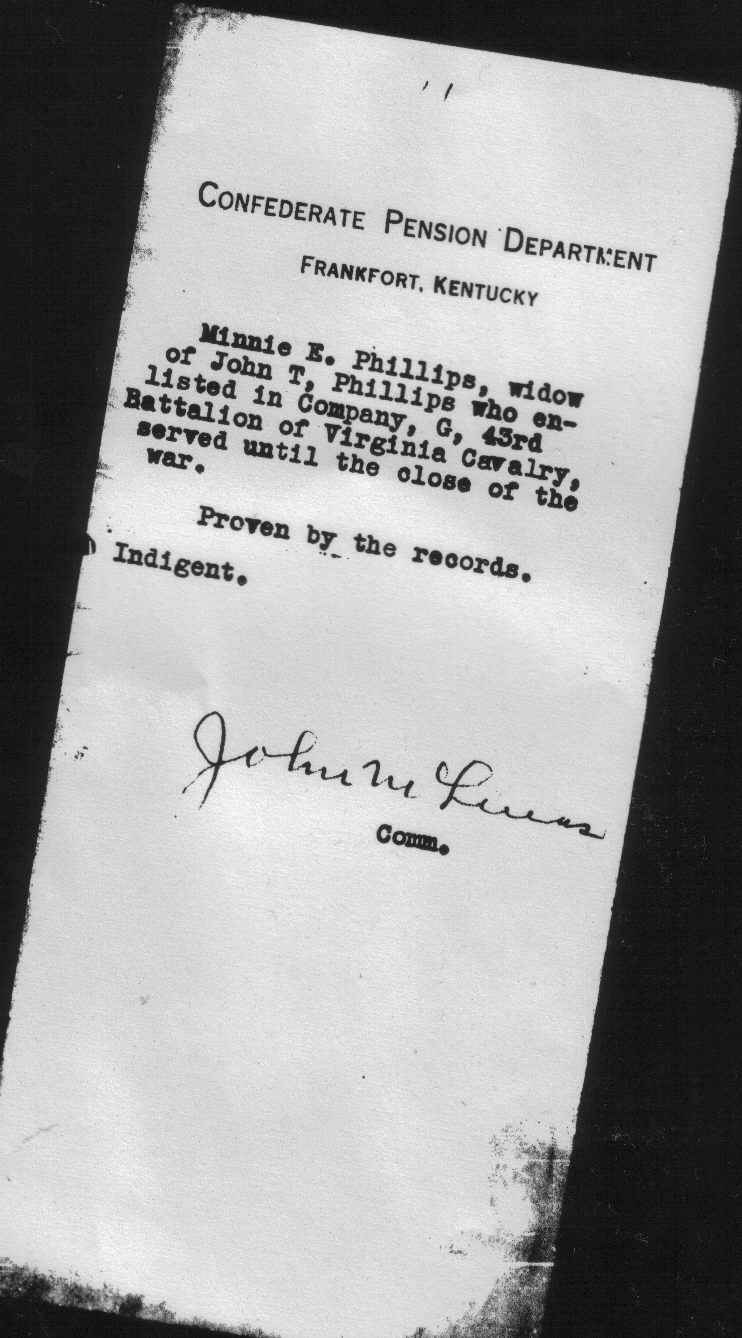 CONFEDERATE PENSION DEPARTMENT
FRANKFORT, KENTUCKY
Minnie E. Phillips, widow
of John T, Phillips who en-
listed in Company, G, 43rd
Battalion of Virginia Cavalry,
served until the close of the
war.
Proven by the records.
Indigent.
John M Lucas
Comm.